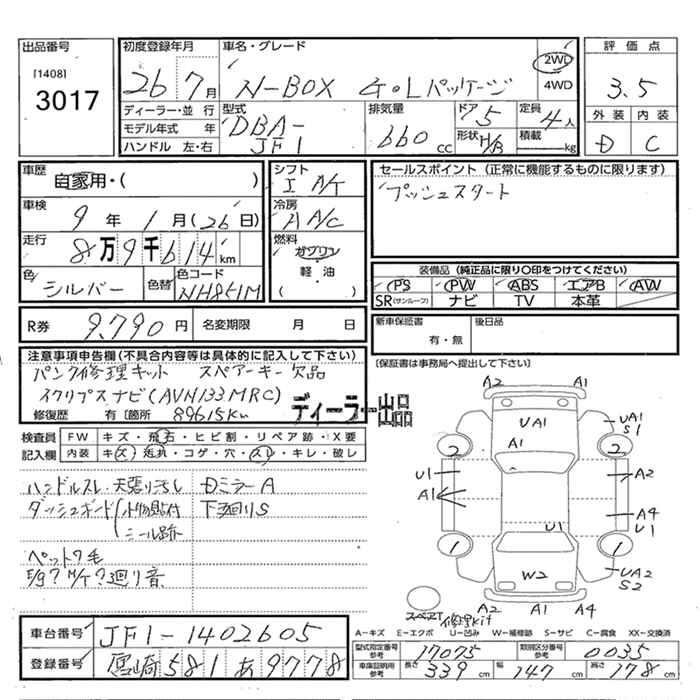 出品番号
[1408]
3017
初度登録年月
26 7月
車名・グレード
N-BOX G・Lパッケージ
2WD
4WD
評価点
3.5
外装 内装
D C
ディーラー・並行
モデル年式 年
ハンドル 左・右
型式
DBA-
JF1
排気量
660 cc
ドア 5
形状 H/B
定員 4人
積載 kg
車歴
自家用・( )
車検
9年1月(26日)
走行
8万9千614km
色
シルバー
色替
色コード
NH851M
シフト
I A/T
冷房
A A/C
燃料
ガソリン
・
軽・油
( )
セールスポイント(正常に機能するものに限ります)
プッシュスタート
装備品(純正品に限り○印をつけてください)
PS PW ABS エアB AW
SR(サンルーフ) ナビ TV 本革
R券 9,790円 名変期限 月 日
新車保証書
有・無
後日品
[保証書は事務局へ提出して下さい]
注意事項申告欄(不具合内容等は具体的に記入して下さい)
パンク修理キット スペアーキー欠品
イクリプスナビ(AVN133MRC)
修復歴 有〔箇所 89615Km
ディーラー出品
検査員
記入欄
FW キズ・飛石・ヒビ割・リペア跡・X要
内装 キズ・汚れ・コゲ・穴・スレ・キレ・破レ
ハンドルスレ・天張り汚し Dミラー A
ダッシュボード(小物貼付 下廻りS
シール跡
ペット?毛
E/g? M/T? 廻り音
A2 A1
UA1
UA1
S1
A1
2 2
U1
A1
A2
A4
U1
U1
1 1
W2
UA2
S2
A2 A1 A4
スペアT 修理kit
A-キズ E-エクボ U-凹み W-補修跡 S-サビ C-腐食 XX-交換済
車台番号 JF1-1402605
登録番号 宮崎 581 あ 9778
型式指定番号
参考
17075
類別区分番号
参考
0035
車庫証明用
参考
長さ 339cm 幅 147cm 高さ 178cm